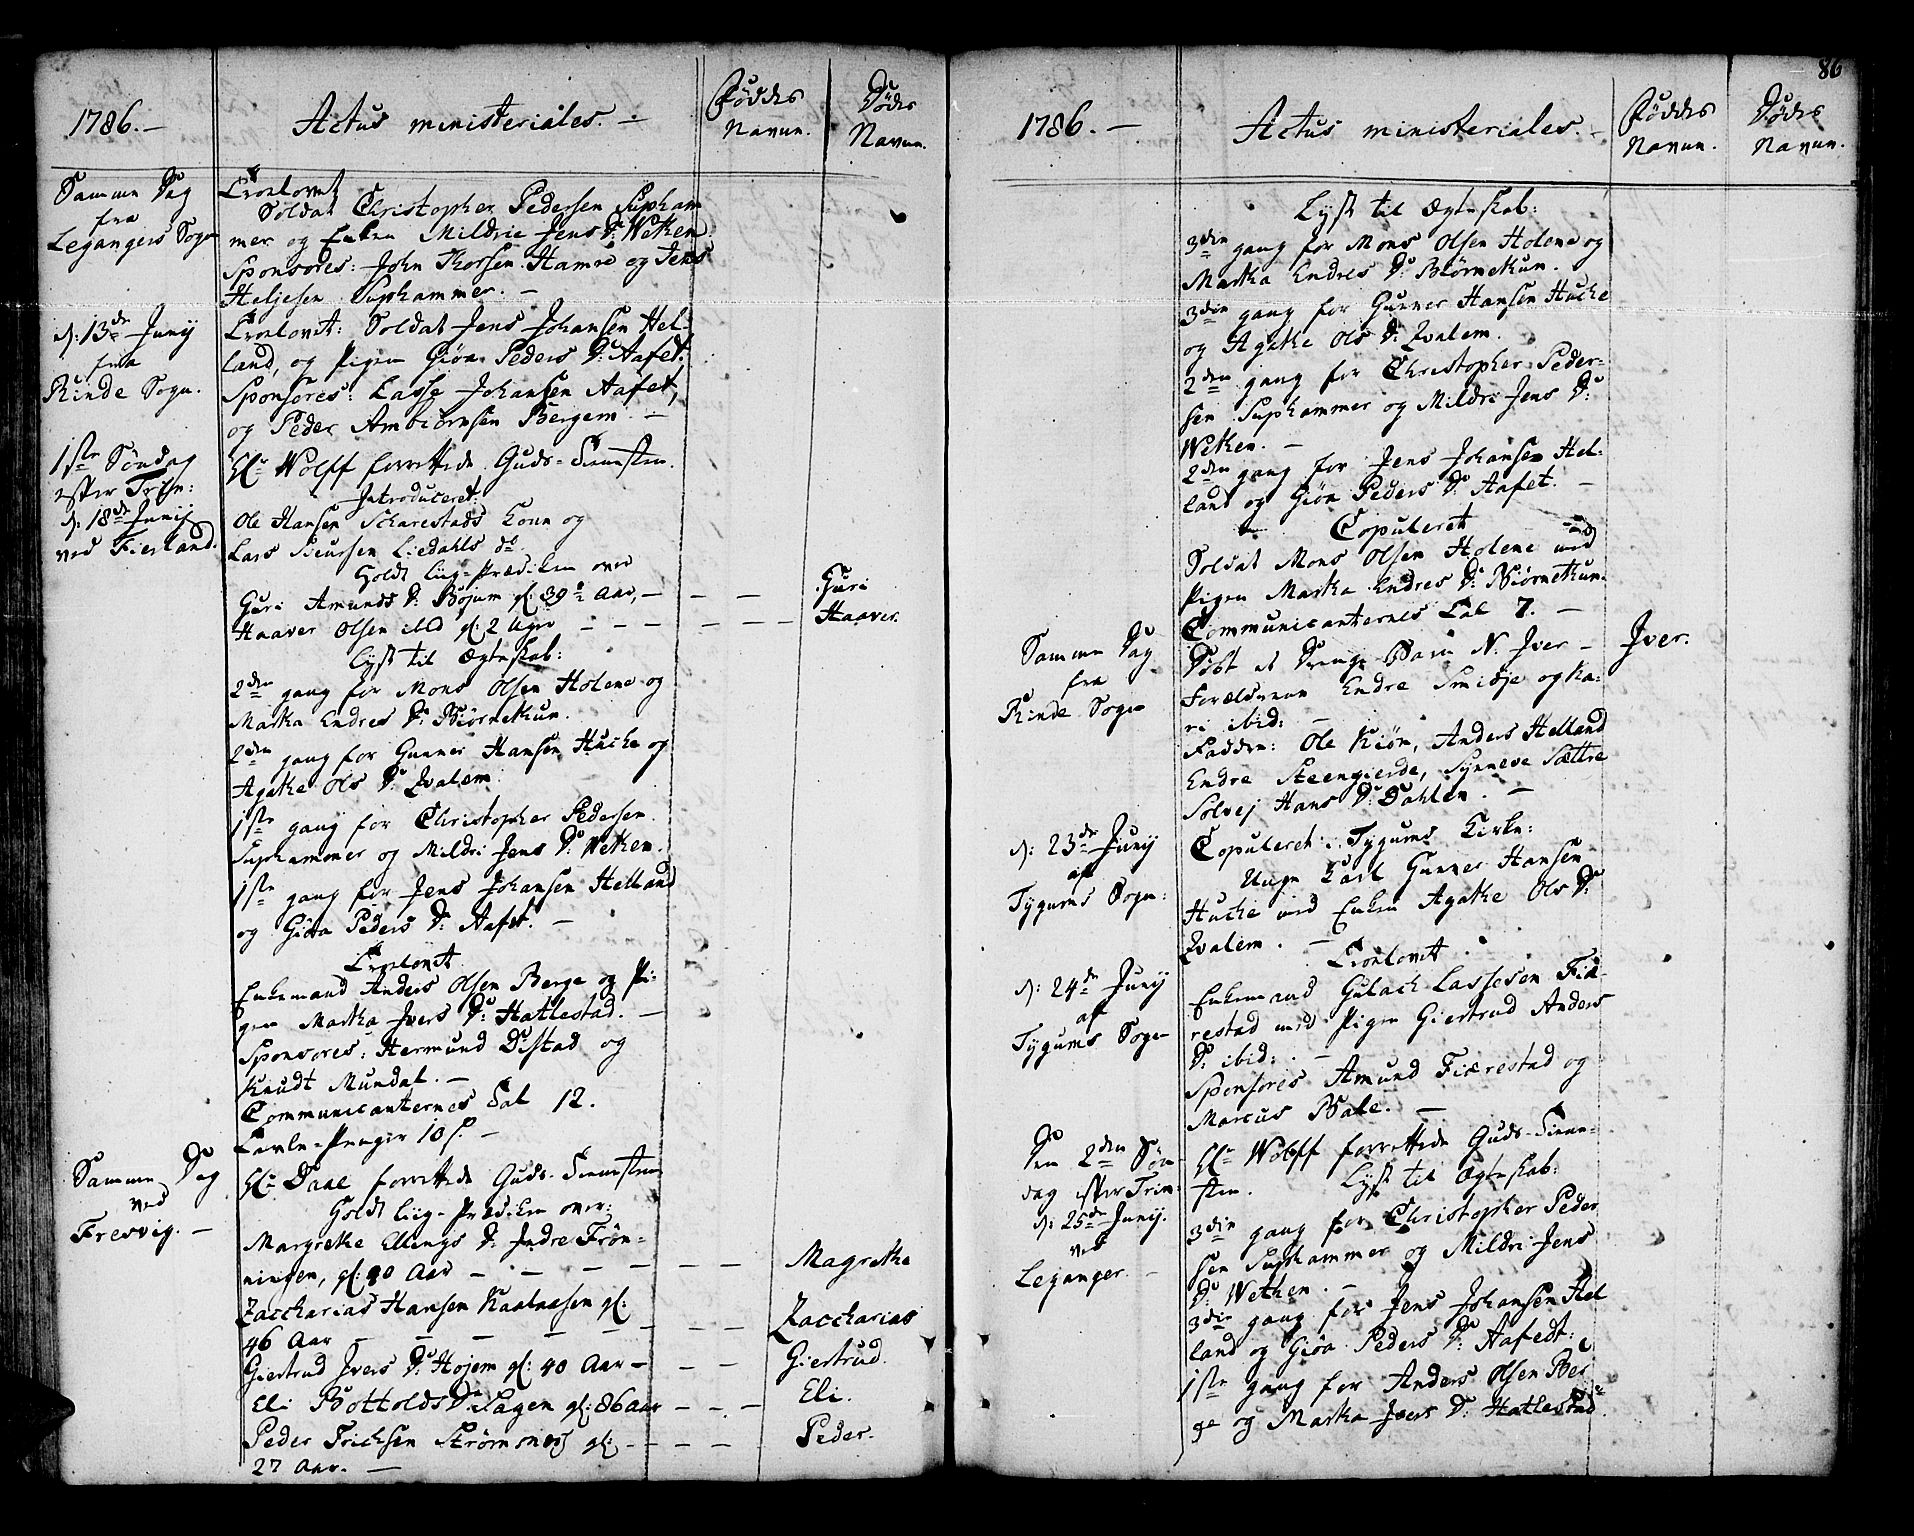 1786.—
Actus ministeriales. —
Føddes Navne.
Dødes Navne.
Samme Dag
fra
Legangers Sogn
Trolovet
Soldat Christopher Pedersen Suphammer
mer og Enken Mildrie Jens D: Wetken
Sponsores: John Thorsen Hamre og Jens
Heljesen Suphammer. —
d: 13de Junij
fra
Rinde Sogn.
Trolovet: Soldat Jens Johansen Hel-
land, og Pigen Giøa Peders D: Aafet.
Sponsores: Lasse Johansen Aafet,
og Peder Ambiørnsen Bergem. —
1ste Søndag
efter Trin:
d: 18de Junij
ved Fierland.
Hr Wolff forrettede Guds-Tienesten.
Introduceret:
Ole Hansen Scharestads Kone og
Lars Siursen Liedahls do
Holdt Liig-Prædiken over
Guri Amunds D: Bojum gl: 39½ Aar, — — —
Guri
Haaver Olsen ibid gl: 2 Uger — — — — — —
Haaver.
Lyst til Ægteskab:
2den gang for Mons Olsen Holene og
Martha Endres D: Biørnetun.
2den gang for Gunner Hansen Huche og
Agathe Ols D: Qvalem
1ste gang for Christopher Pedersen
Suphammer og Mildri Jens D: Wetken.
1ste gang for Jens Johansen Helland
og Giøa Peders D: Aafet. —
Trolovet
Enkemand Anders Olsen Berge og Pi-
gen Martha Jvers D: Hatlestad. —
Sponsores: Hermund Distad og
Knudt Mundal. —
Communicanternes Tal 12.
Tavle-Penger 10 s. —
Samme Dag
ved
Fresvig. —
Hr Daae forrettede Guds-Tienesten
Holdt Liig-Prædiken over:
Margrethe Ellings D: Indre Frøn-
ningen, gl: 90 Aar — — — — — —
Magretha
Zaccharias Hansen Kaataasen gl:
46 Aar — — — — — — —
Zaccharias
Giertrud Jvers D: Hojem gl: 40 Aar — — —
Giertrud.
Eli Bottolds D: Lagen gl: 86 Aar — — —
Eli.
Peder Erichsen Strømsnes gl: — — — —
Peder.
27 Aar. —
86
1786. —
Actus ministeriales. —
Føddes Navne.
Dødes Navne.
Lyst til Ægteskab:
3die gang for Mons Olsen Holene og
Martha Endres D: Biørnetun.
3die gang for Gunner Hansen Huche
og Agathe Ols D: Qvalem.
2den gang for Christopher Peder-
sen Suphammer og Mildri Jens D:
Wetken. —
2den gang for Jens Johansen Hel-
land og Giøa Peders D: Aafet. —
Copuleret
Soldat Mons Olsen Holene med
Pigen Martha Endres D: Biørnetun.
Communicanternes Tal 7. —
Samme Dag
fra
Rinde Sogn
Døbt et Drenge Barn N. Jver —
Jver.
Forældrene Endre Smidje og Ka-
ri ibid: —
Faddere: Ole Kiøn, Anders Helland
Endre Steengierde, Synneve Sættre
Solvej Hans D: Dahlen. —
d: 23de Junij
af
Tygums Sogn:
Copuleret i Tygums Kirke:
Unge Karl Gunner Hansen
Huche med Enken Agathe Ols D:
Qvalem. —
d: 24de Junij
af
Tygums Sogn
Trolovet
Enkemand Gulach Lassesen Fiæ-
restad med Pigen Giertrud Anders
D: ibid: —
Sponsores Amund Fiærestad og
Marcus Bale. —
Den 2den Søn-
dag efter Trin:
d: 25de Junij.
ved
Leganger. —
Hr Wolff forrettede Guds-Tiene-
sten. Lyst til Ægteskab:
3die gang for Christopher Peder
sen Suphammer og Mildri Jens
D: Wetken. —
3die gang for Jens Johansen Hel
land og Giøa Peders D: Aafedt:
1ste gang for Anders Olsen Ber
ge og Martha Jvers D: Hatlestad.